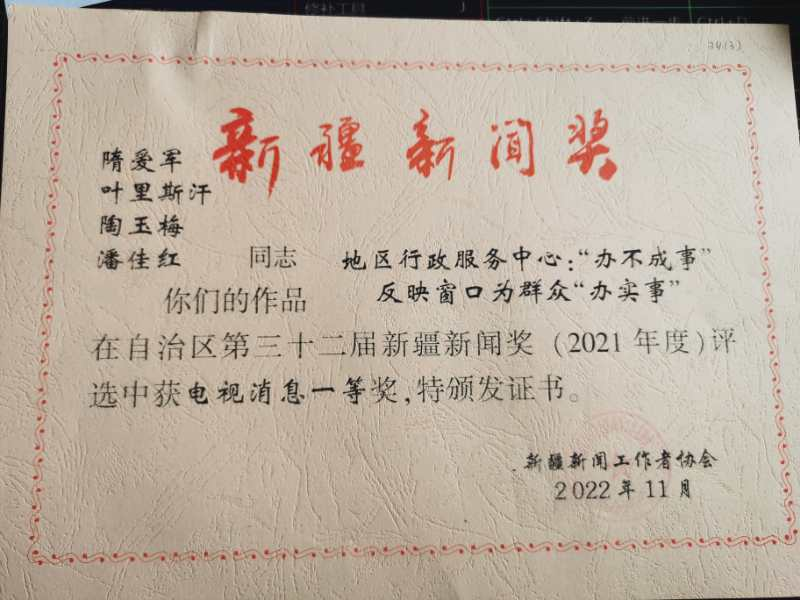 修补工具
74(3)
新疆新闻奖
隋爱军
叶里斯汗
陶玉梅
潘佳红 同志 地区行政服务中心：“办不成事”
你们的作品 反映窗口为群众“办实事”
在自治区第三十二届新疆新闻奖（2021年度）评
选中获电视消息一等奖，特颁发证书。
新疆新闻工作者协会
2022年11月